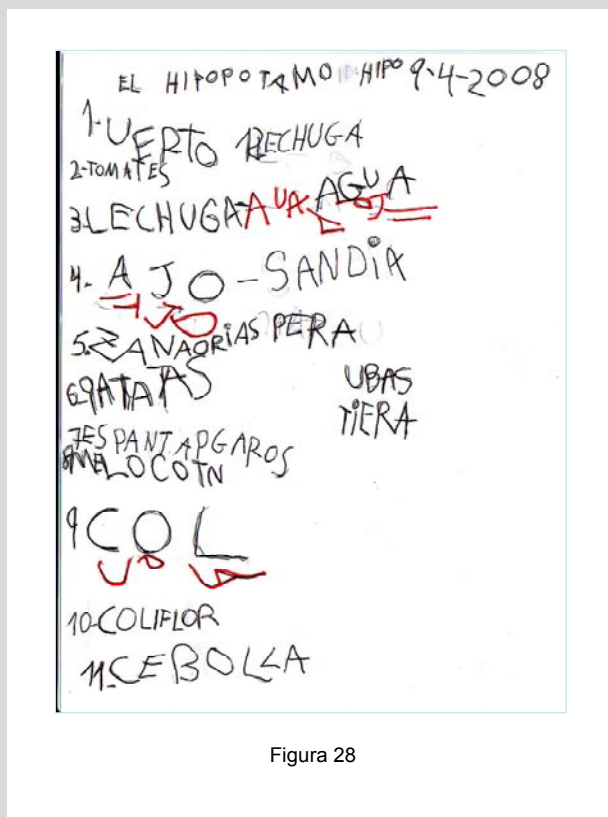 EL HIPOPOTAMO HIPO 9-4-2008
1-UERTO LECHUGA
2-TOMATES
3-LECHUGA AUA AGUA
4-AJO-SANDiA
AJO
5-ZANAORiAS PERA
6-PATATAS UBAS
TiERA
7-ESPANTAPGAROS
8-MELOCOTN
9 COL
10-COLIFLOR
11-CEBOLLA
Figura 28